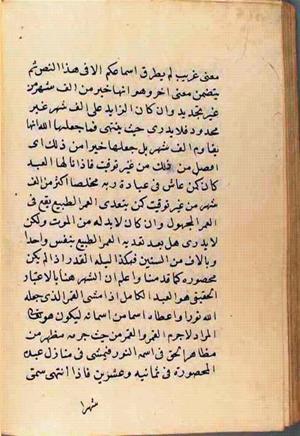 معنى غريب لم يطرق اسماعكم الا في هذا النص ثم
يتضمن معنى اخر وهو انها خير من الف شهر من
غير تحديد وان كان الزايد على الف شهر غير
محدود فلا يدرى حيث ينتهى فما جعلها الله انها
تقاوم الف شهر بل جعلها خيرا من ذلك اى
افضل من ذلك من غير توقيت فاذا نالها العبد
كان كمن عاش في عبادة ربه مخلصا اكثر من الف
شهر من غير توقيت كمن يتعدى العمر الطبيع يقع في
العمر المجهول وان كان لا بد له من الموت ولكن
لا يدرى هل بعد تعديه العمر الطبيع بنفس واحد
او بالاف من السنين فهكذا ليلة القدر اذا لم يكن
محصورة كما قدمنا واعلم ان الشهر هنا بالاعتبار
الحقيقى هو العبد الكامل اذا مشى القمر الذى جعله
الله نورا واعطاه اسما من اسمائه ليكون هو تعالى
المراد لا جرم القمر والقمر من حيث جرمه مظهر من
مظاهر الحق في اسمه النور فيمشى في منازل عبده
المحصورة في ثمانية وعشرين فاذا انتهى سمى
شهرا